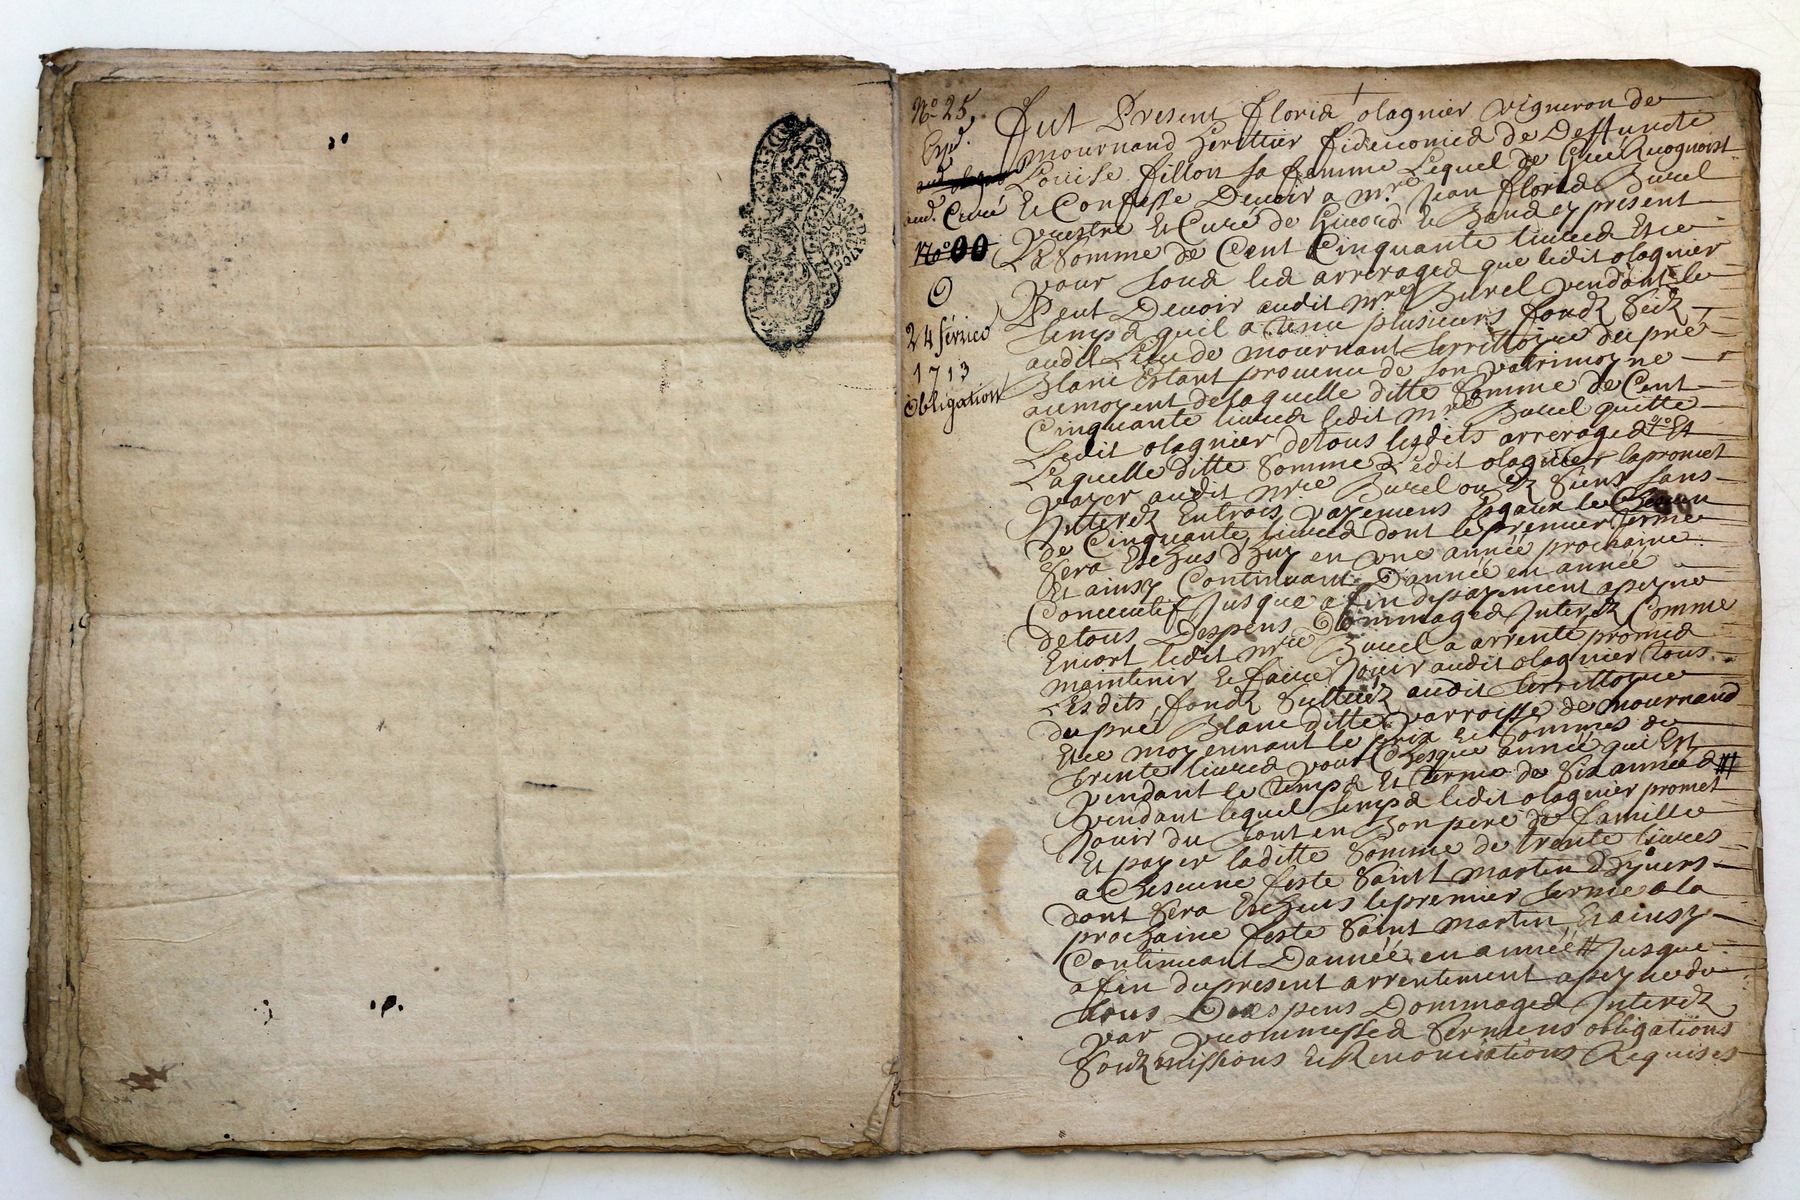 N.o 25.
Exp.d
aud. Curé
N.o 00
24 février
1713
obligation
Fut Present Floris olagnier vigneron de
mournand heritier fideicomis de Deffuncte
Louise fillon sa femme Lequel de Gré Recognoist
Et Confesse Devoir a m.re Jean floris Burel
prestre Et Curé de present
La Somme de Cent Cinquante livres Et ce
pour tous les arrerages que ledit olagnier
Peut Devoir audit m.re Burel pendant le
temps quil a tenu plusieurs fondz Sciz
audit Lieu de mournant territtoire du pré
Blanc Estant provenu de son patrimoyne
au moyent de laquelle ditte Somme de Cent
Cinquante livres ledit m.re Burel quitte
Ledit olagnier de tous lesdits arrerages Et
Laquelle ditte Somme Ledit olagnier la promet
payer audit m.re Burel ou ez Siens Sans
Interestz En trois payemens Esgaux le Chacun
de Cinquante livres dont le premier terme
Sera Eschus d'huy en une année prochaine
Et ainsy Continuant D'année en année
Concecutif Jusque a fin de payement a peyne
de tous Despens Dommages Interestz Comme
Encort ledit m.re Burel a arrenté promis
maintenir Et faire Jouir audit olagnier tous
Lesdits fondz Scituéz audit territtoyre
du pré Blanc ditte parroisse de mournand
Et ce moyennant le prix Et Sommes de
trente livres pour Chesque année qui Est
pendant le temps Et terme de Six années
pendant lequel temps ledit olagnier promet
Jouir du tout en Bon pere de famille
Et payer laditte Somme de trente livres
a Chescune feste Saint martin D'hyvers
dont Sera Eschus le premier terme a la
prochaine feste Saint martin Et ainsy
Continuant D'année en année Jusque
a fin du present arrentement a peyne de
tous Despens Dommages Interestz
par promesses Sermens obligations
Soubzmissions Et Renonciations Requises